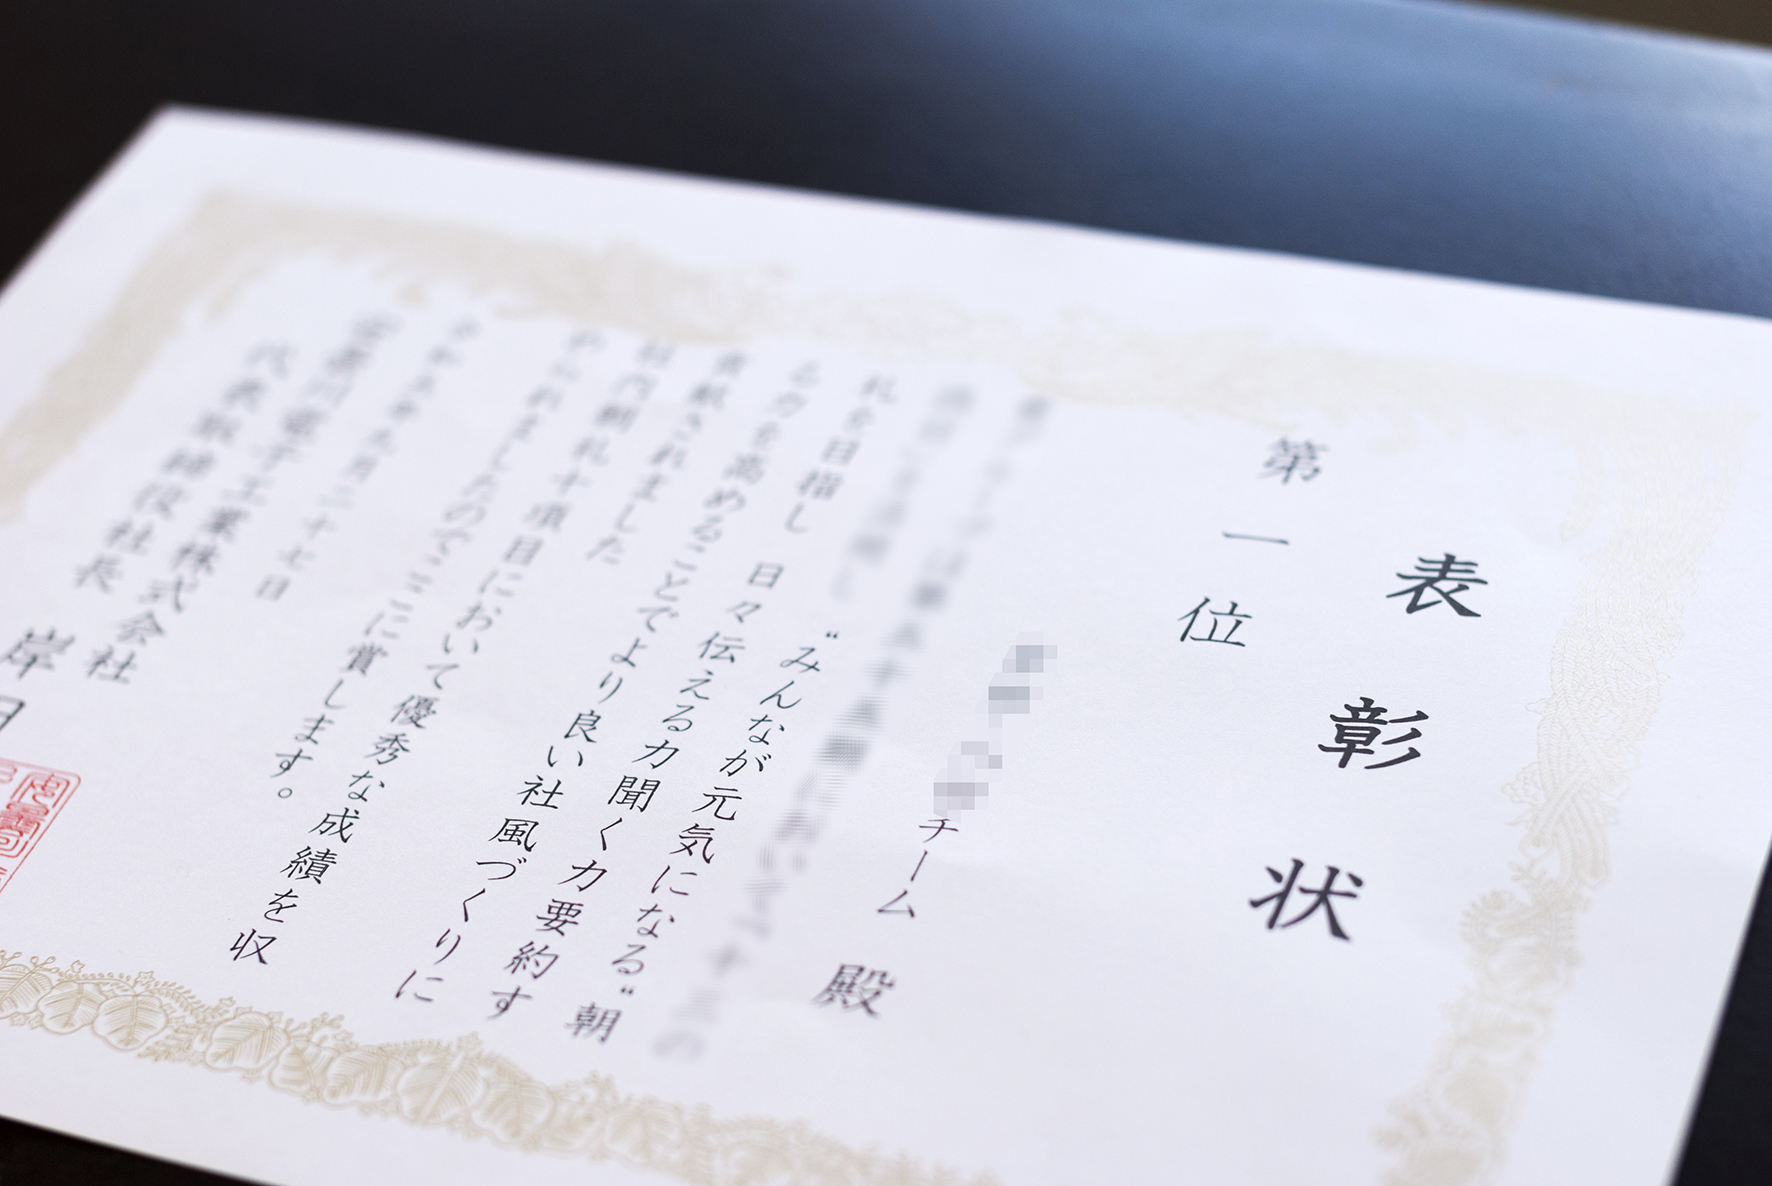 表彰状
第一位
チーム 殿
“みんなが元気になる”朝
礼を目指し 日々伝える力聞く力要約す
る力を高めることでより良い社風づくりに
貢献されました
社内朝礼十項目において優秀な成績を収
められましたのでここに賞します。
令和五年九月二十七日
安曇川電子工業株式会社
代表取締役社長 岸